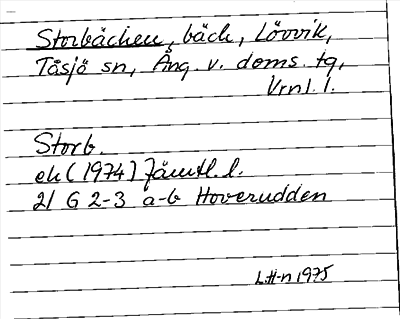 Storbäcken, bäck, Lövvik,
Tåsjö sn, Ång. v. doms. tg,
Vrnl. l.
Storb.
ek (1974) Jämtl. l.
21 G 2-3 a-b Hoverudden
L.H-n 1975